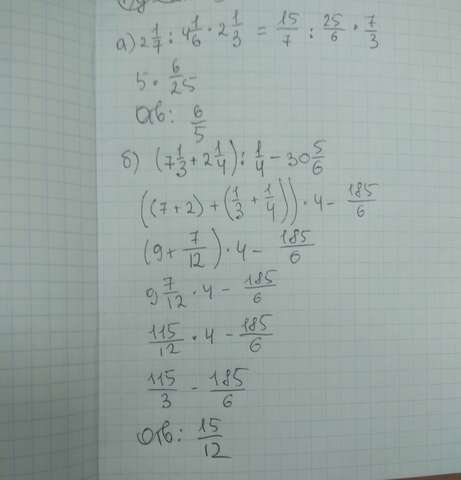 а) 2 1/7 : 4 1/6 · 2 1/3 = 15/7 : 25/6 · 7/3
5 · 6/25
Отв: 6/5
б) (7 1/3 + 2 1/4) : 1/4 − 30 5/6
((7 + 2) + (1/3 + 1/4)) · 4 − 185/6
(9 + 7/12) · 4 − 185/6
9 7/12 · 4 − 185/6
115/12 · 4 − 185/6
115/3 − 185/6
Отв: 15/12